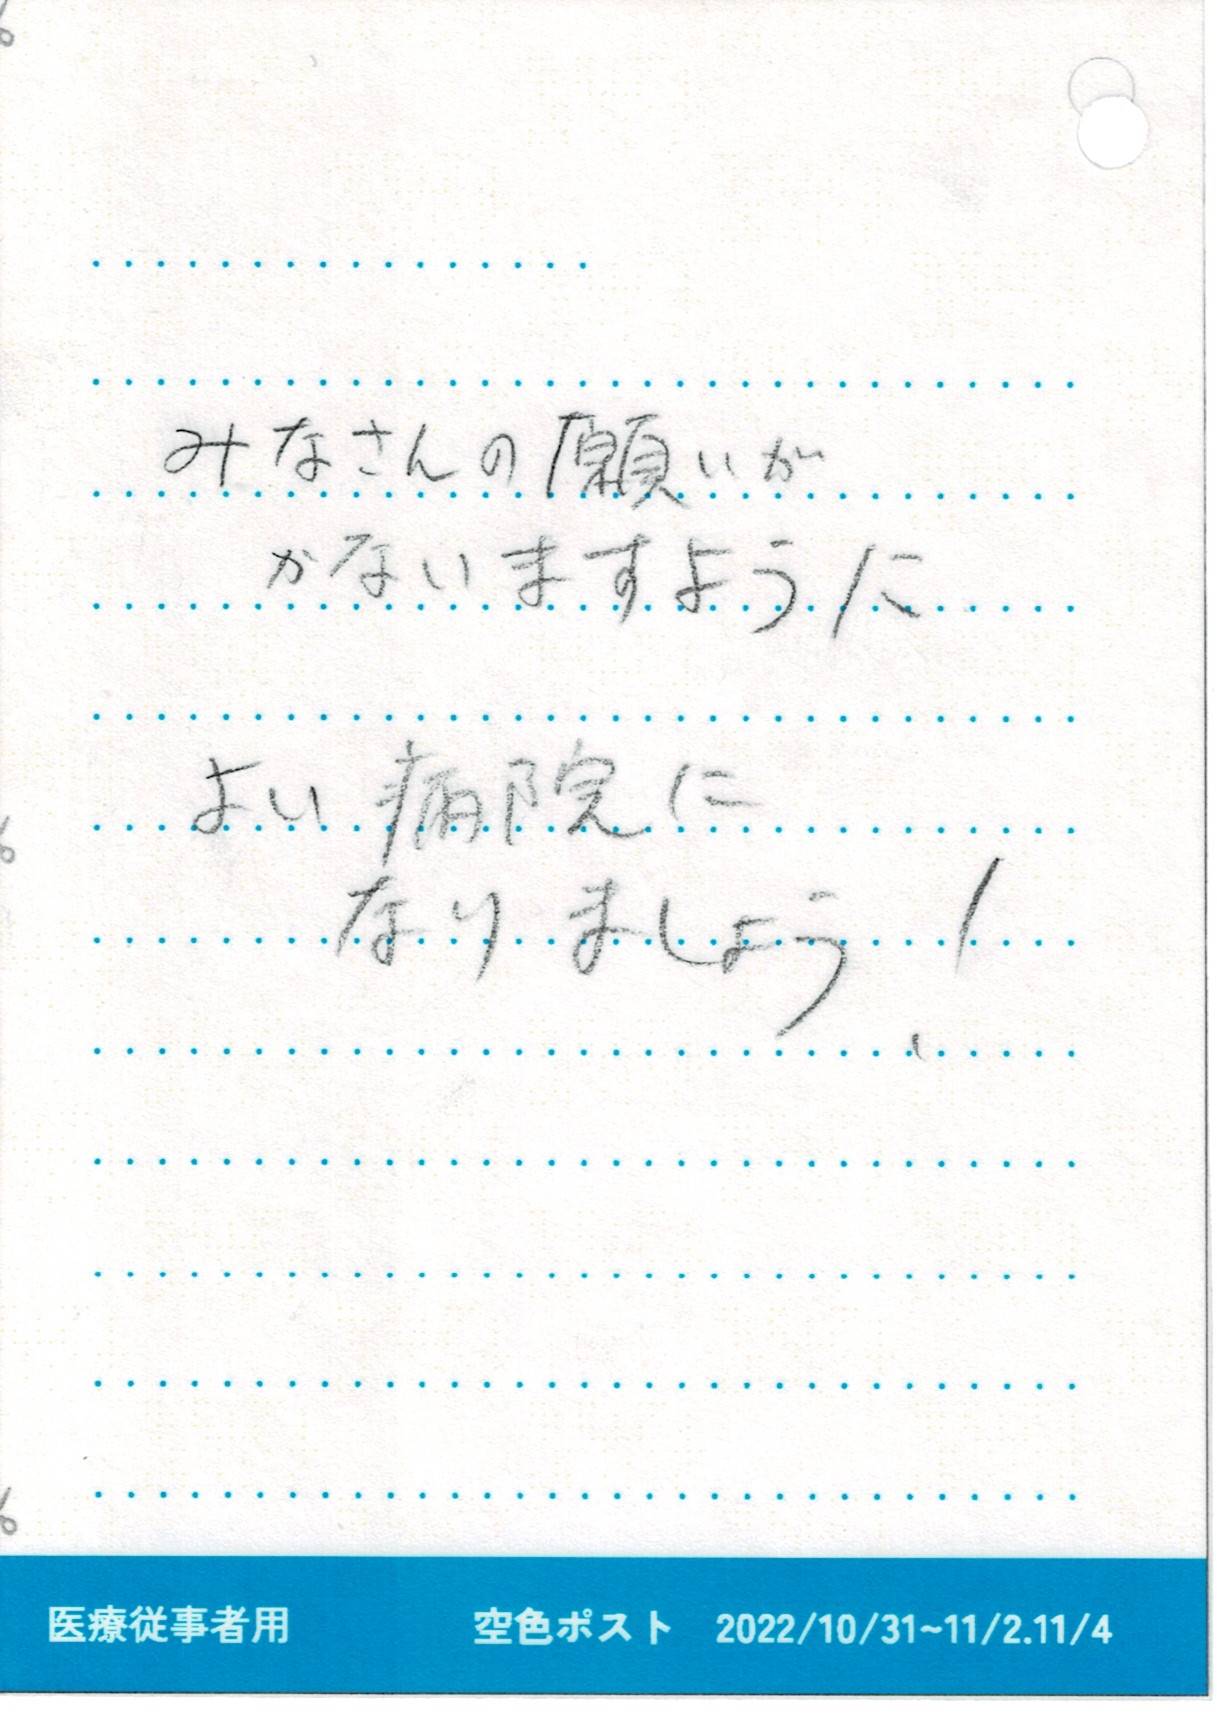 みなさんの願いが
かないますように
よい病院に
なりましょう!
医療従事者用 空色ポスト 2022/10/31~11/2.11/4